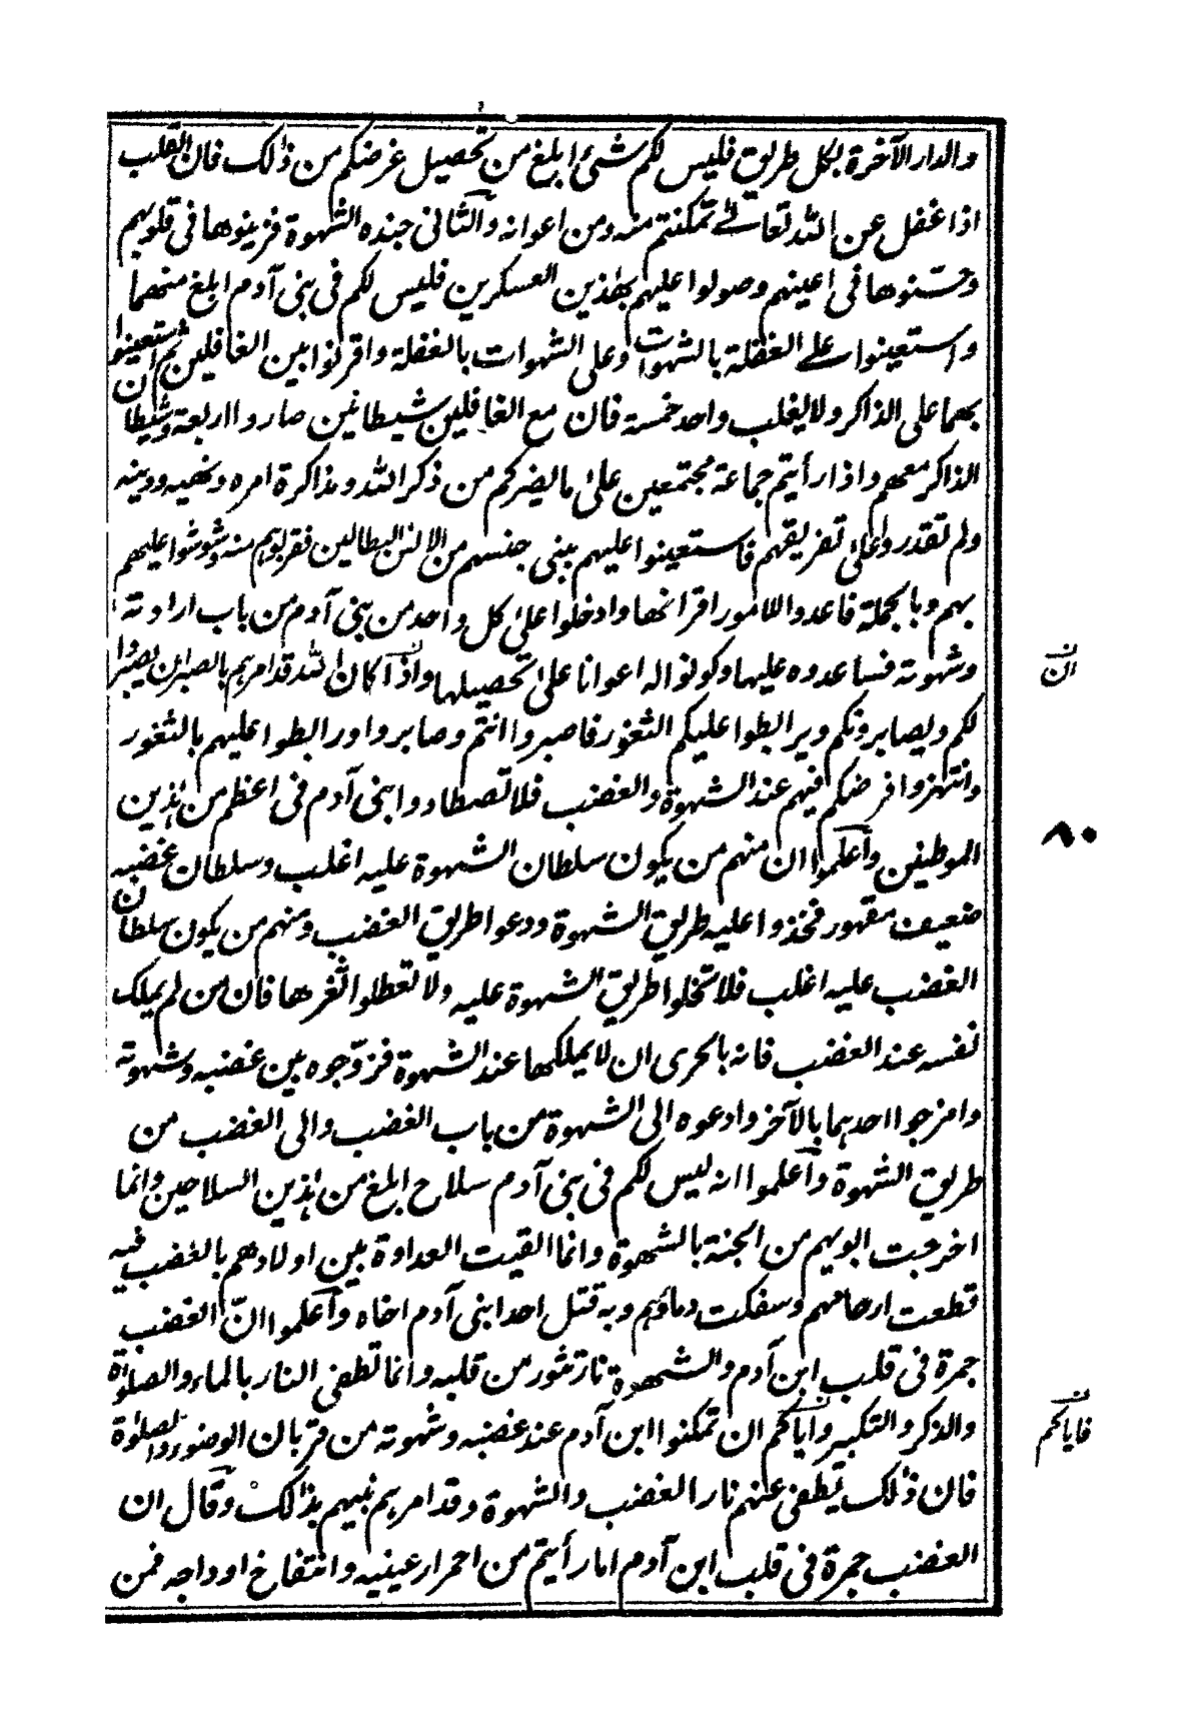 والدار الآخرة بكل طريق فليس لكم شئ ابلغ من تحصيل غرضكم من ذٰلك فان القلب
اذا غفل عن الله تعالے تمكنتم منه ومن اعوانه والثانى جنده الشهوة فزينوها فى قلوبهم
وحسّنوها فى اعينهم وصولوا عليهم بهٰذين العسكرين فليس لكم فى بنى آدم ابلغ منهما
واستعينوا علے الغفلة بالشهوات وعلى الشهوات بالغفلة واقرنوا بين الغافلين ثم استعينوا
بهما على الذاكر ولا يغلب واحد خمسة فان مع الغافلين شيطانين صاروا اربعة وشيطان
الذاكر معهم واذا رأيتم جماعة مجتمعين علىٰ ما يضركم من ذكر الله ومذاكرة امره ونهيه ودينه
ولم تقدروا علىٰ تفريقهم فاستعينوا عليهم ببنى جنسهم من الانس البطالين فقربوهم منه وشوشوا عليهم
بهم وبالجملة فاعدوا للامور اقرانها وادخلوا علىٰ كل واحد من بنى آدم من باب ارادته
وشهوته فساعدوه عليها وكونوا له اعوانا علىٰ تحصيلها واذا كان الله قد امرهم بالصبر ان يصبروا
لكم ويصابرونكم ويرابطوا عليكم الثغور فاصبروا انتم وصابروا ورابطوا عليهم بالثغور
وانتهزوا فرضكم فيهم عند الشهوة والغضب فلا تصطادوا بنى آدم فى اعظم من هٰذين
الموطنين واعلموا ان منهم من يكون سلطان الشهوة عليه اغلب وسلطان غضبه
ضعيف مقهور فخذوا عليه طريق الشهوة ودعوا طريق الغضب ومنهم من يكون سلطان
الغضب عليه اغلب فلا تخلوا طريق الشهوة عليه ولا تعطلوا ثغرها فان من لم يملك
نفسه عند الغضب فانه بالحرى ان لا يملكها عند الشهوة فزوّجوه بين غضبه وشهوته
وامزجوا احدهما بالآخر وادعوه الى الشهوة من باب الغضب والى الغضب من
طريق الشهوة واعلموا انه ليس لكم فى بنى آدم سلاح ابلغ من هٰذين السلاحين وانما
اخرجت ابويهم من الجنة بالشهوة وانما القيت العداوة بين اولادهم بالغضب فبه
قطعت ارحامهم وسفكت دماؤهم وبه قتل احد ابنى آدم اخاه واعلموا انّ الغضب
جمرة فى قلب ابن آدم والشهوة نار تثور من قلبه وانما تطفى النار بالماء والصلوٰة
والذكر والتكبير واياكم ان تمكنوا ابن آدم عند غضبه وشهوته من قربان الوضوء والصلوٰة
فان ذٰلك يطفى عنهم نار الغضب والشهوة وقد امرهم نبيهم بذالك وقال ان
الغضب جمرة فى قلب ابن آدم اما رأيتم من احمرار عينيه وانتفاخ اوداجه فمن
ان
٨٠
فاياكم